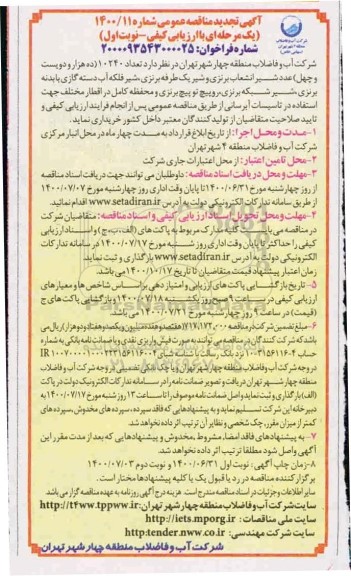 آگهی تجدید مناقصه عمومی شماره ۱۴۰۰/۱۱
(یک مرحله ای با ارزیابی کیفی - نوبت اول)
شماره فراخوان: ۲۰۰۰۰۹۳۵۴۳۰۰۰۰۲۵
شرکت آب و فاضلاب
منطقه ۴ شهر تهران
شرکت آب و فاضلاب منطقه چهار شهر تهران در نظر دارد تعداد ۱۰۲۴۰ (ده هزار و دویست
و چهل) عدد شیر انشعاب برنزی و شیر یک طرفه برنزی، شیر فلکه آب دسته گازی با بدنه
برنزی، شیر شبکه برنزی، روپیچ توپیچ برنزی و محفظه کامل در اقطار مختلف جهت
استفاده در تاسیسات آبرسانی از طریق مناقصه عمومی پس از انجام فرایند ارزیابی کیفی و
تایید صلاحیت متقاضیان از تولیدکنندگان معتبر داخل کشور خریداری نماید.
۱- مدت و محل اجرا: از تاریخ ابلاغ قرارداد به مدت چهار ماه در محل انبار مرکزی
آب و فاضلاب منطقه ۴ شهر تهران
۲- محل تامین اعتبار: از محل اعتبارات جاری شرکت
۳- مهلت و محل دریافت اسناد مناقصه: داوطلبان می توانند جهت دریافت اسناد مناقصه
از روز چهارشنبه مورخ ۱۴۰۰/۰۶/۳۱ تا پایان وقت اداری روز چهارشنبه مورخ ۱۴۰۰/۰۷/۰۷
از طریق سامانه تدارکات الکترونیکی دولت به آدرس www.setadiran.ir اقدام نمائید.
۴- مهلت و محل تحویل اسناد ارزیابی کیفی و اسناد مناقصه: متقاضیان شرکت
در مناقصه می بایست کلیه مدارک مربوط به پاکت های (الف، ب، ج) و اسناد ارزیابی
کیفی را حداکثر تا پایان وقت اداری روز شنبه مورخ ۱۴۰۰/۰۷/۱۷ در سامانه تدارکات
الکترونیکی دولت به آدرس www.setadiran.ir بارگذاری و ثبت نمایند.
زمان اعتبار پیشنهاد قیمت متقاضیان تا تاریخ ۱۴۰۰/۱۰/۱۷ می باشد.
۵- تاریخ بازگشایی پاکت های ارزیابی و امتیازدهی براساس شاخص ها و معیارهای
ارزیابی کیفی در ساعت ۹ صبح روز یکشنبه ۱۴۰۰/۰۷/۱۸ و بازگشایی پاکت های ج
(قیمت) در ساعت ۹ روز چهارشنبه مورخ ۱۴۰۰/۰۷/۲۱ می باشد.
۶- مبلغ تضمین شرکت در مناقصه
باشد که شرکت کنندگان در مناقصه می توانند به صورت فیش واریزی نقدی و یا ضمانت نامه بانکی به شماره
در وجه شرکت آب و فاضلاب منطقه چهار شهر تهران و یا چک بانکی تضمین در وجه شرکت آب و فاضلاب
منطقه چهار شهر تهران دریافت و تصویر ضمانت نامه را در سامانه تدارکات الکترونیک دولت در پاکت
(الف) بارگذاری و ثبت نماید و اصل ضمانت نامه موصوف را تا ساعت ۱۳ روز شنبه مورخ ۱۴۰۰/۰۷/۱۷ به
دبیرخانه این شرکت تسلیم نماید و به پیشنهادهایی که فاقد سپرده، سپرده های مخدوش، سپرده های
کمتر از میزان مقرر، چک شخصی و نظایر آن ترتیب اثر داده نخواهد شد.
۷- به پیشنهادهای فاقد امضا، مشروط، مخدوش و پیشنهادهایی که بعد از مدت مقرر این
آگهی واصل شود مطلقا ترتیب اثر داده نخواهد شد.
۸- زمان چاپ آگهی: نوبت اول ۱۴۰۰/۰۶/۳۱ و نوبت دوم ۱۴۰۰/۰۷/۰۳
برگزار کننده مناقصه در رد یا قبول یک یا کلیه پیشنهادها مختار است.
سایر اطلاعات و جزئیات در اسناد مناقصه مندرج است. هزینه درج آگهی روزنامه به عهده مناقصه گزار می باشد
سایت شرکت آب و فاضلاب منطقه چهار شهر تهران: http://t4ww.tpww.ir
سایت ملی مناقصات: http://iets.mporg.ir
سایت شرکت مهندسی: http:tender.nww.co.ir
شرکت آب و فاضلاب منطقه چهار شهر تهران